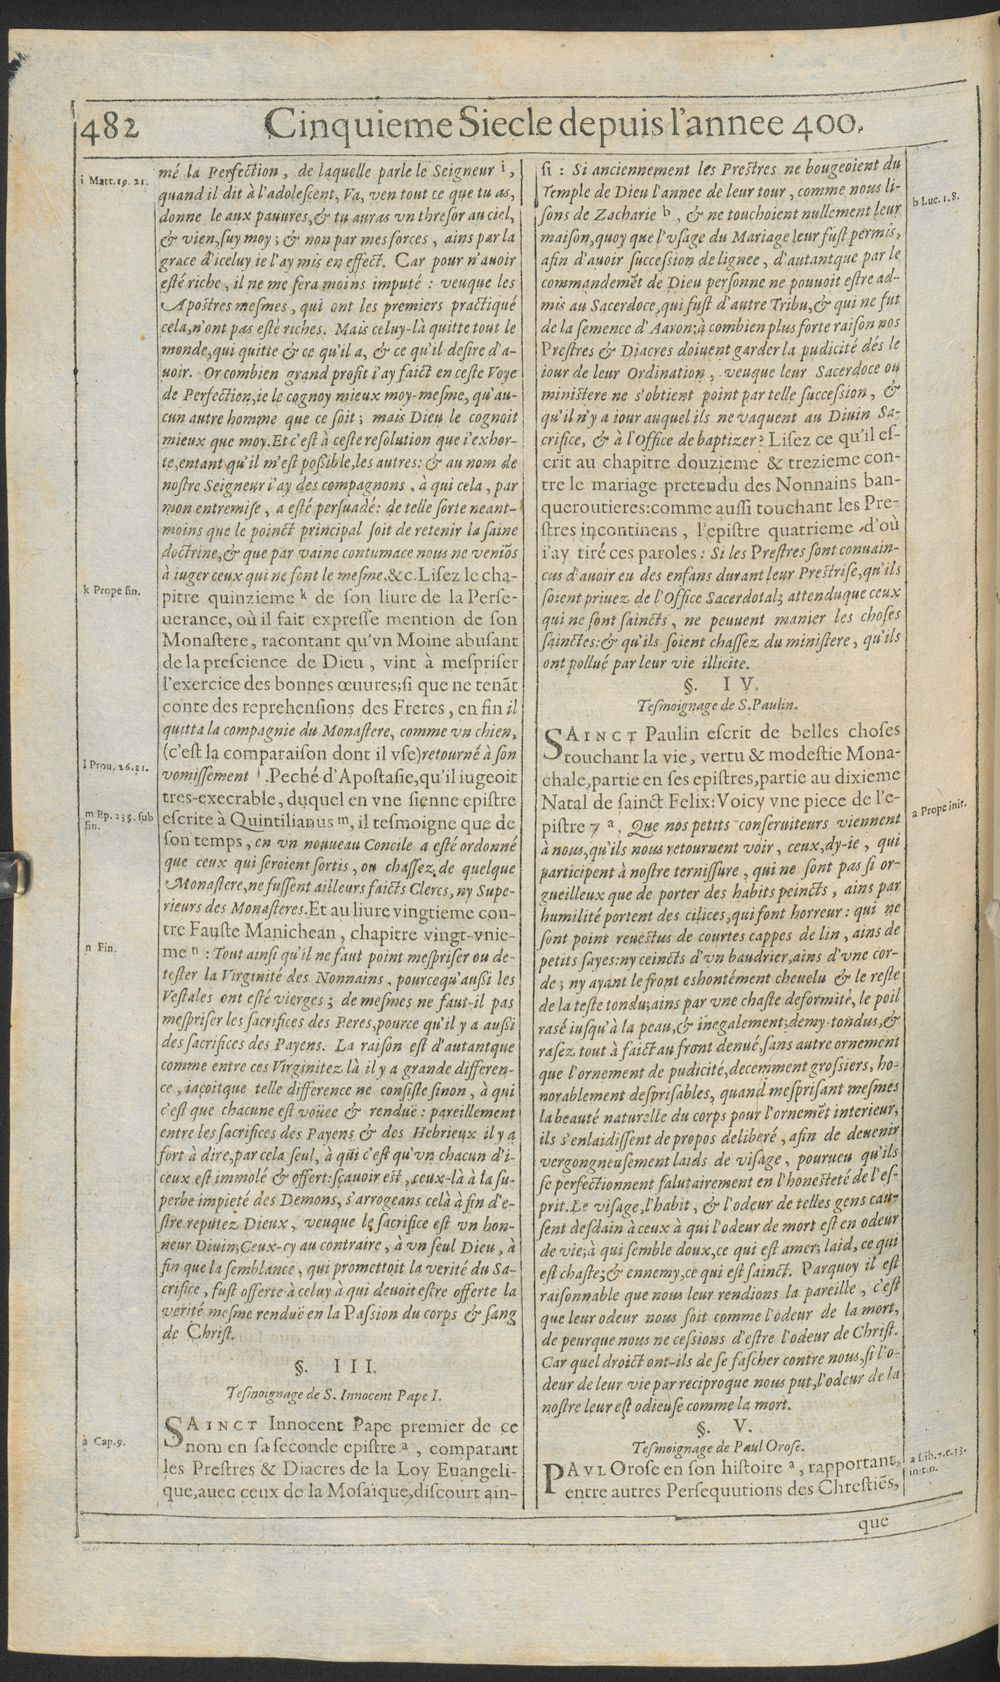 482
Cinquieme Siecle depuis l'annee 400.
i Matt. 19. 21.
mé la Perfection, de laquelle parle le Seigneur i,
quand il dit à l'adolescent, Va, ven tout ce que tu as,
donne le aux pauures, & tu auras vn thresor au ciel,
& vien, suy moy; & non par mes forces, ains par la
grace d'iceluy ie l'ay mis en effect. Car pour n'auoir
esté riche, il ne me sera moins imputé: veuque les
Apostres mesmes, qui ont les premiers practiqué
cela, n'ont pas esté riches. Mais celuy-là quitte tout le
monde, qui quitte & ce qu'il a, & ce qu'il desire d'a-
uoir. Or combien grand profit i'ay faict en ceste Voye
de Perfection, ie le cognoy mieux moy-mesme, qu'au-
cun autre homme que ce soit; mais Dieu le cognoit
mieux que moy. Et c'est à ceste resolution que i'exhor-
te, entant qu'il m'est possible, les autres: & au nom de
nostre Seigneur i'ay des compagnons, à qui cela, par
mon entremise, a esté persuadé: de telle sorte neant-
moins que le poinct principal soit de retenir la saine
doctrine, & que par vaine contumace nous ne veniõs
à iuger ceux qui ne font le mesme. &c. Lisez le cha-
k Prope fin.
pitre quinzieme k de son liure de la Perse-
uerance, où il fait expresse mention de son
Monastere, racontant qu'vn Moine abusant
de la prescience de Dieu, vint à mespriser
l'exercice des bonnes œuures; si que ne tenãt
conte des reprehensions des Freres, en fin il
quitta la compagnie du Monastere, comme vn chien,
(c'est la comparaison dont il vse) retourné à son
l Prou. 26. 11.
vomissement l. Peché d'Apostasie, qu'il iugeoit
tres-execrable, duquel en vne sienne epistre
m Ep. 235. sub
fin.
escrite à Quintilianus m, il tesmoigne que de
son temps, en vn nouueau Concile a esté ordonné
que ceux qui seroient sortis, ou chassez de quelque
Monastere, ne fussent ailleurs faicts Clercs, ny Supe-
rieurs des Monasteres. Et au liure vingtieme con-
tre Fauste Manichean, chapitre vingt-vnie-
n Fin.
me n: Tout ainsi qu'il ne faut point mespriser ou de-
tester la Virginité des Nonnains, pourcequ'aussi les
Vestales ont esté vierges; de mesmes ne faut-il pas
mespriser les sacrifices des Peres, pource qu'il y a aussi
des sacrifices des Payens. La raison est d'autantque
comme entre ces Virginitez là il y a grande differen-
ce, iaçoitque telle difference ne consiste sinon, à qui
c'est que chacune est voüee & renduë: pareillement
entre les sacrifices des Payens & des Hebrieux il y a
fort à dire, par cela seul, à qui c'est qu'vn chacun d'i-
ceux est immolé & offert: sçauoir est, ceux-là à la su-
perbe impieté des Demons, s'arrogeans celà à fin d'e-
stre reputez Dieux, veuque le sacrifice est vn hon-
neur Diuin; Ceux-cy au contraire, à vn seul Dieu, à
fin que la semblance, qui promettoit la verité du Sa-
crifice, fust offerte à celuy à qui deuoit estre offerte la
verité mesme renduë en la Passion du corps & sang
de Christ.
§. III.
Tesmoignage de S. Innocent Pape I.
SAINCT Innocent Pape premier de ce
a Cap. 9.
nom en sa seconde epistre a, comparant
les Prestres & Diacres de la Loy Euangeli-
que, auec ceux de la Mosaique, discourt ain-
si: Si anciennement les Prestres ne bougeoient du
Temple de Dieu l'annee de leur tour, comme nous li-
b Luc. 1. 8.
sons de Zacharie b, & ne touchoient nullement leur
maison, quoy que l'vsage du Mariage leur fust permis,
afin d'auoir succession de lignee, d'autantque par le
commandemẽt de Dieu personne ne pouuoit estre ad-
mis au Sacerdoce, qui fust d'autre Tribu, & qui ne fut
de la semence d'Aaron: à combien plus forte raison nos
Prestres & Diacres doiuent garder la pudicité dés le
iour de leur Ordination, veuque leur Sacerdoce ou
ministere ne s'obtient point par telle succession, &
qu'il n'y a iour auquel ils ne vaquent au Diuin Sa-
crifice, & à l'Office de baptizer? Lisez ce qu'il es-
crit au chapitre douzieme & trezieme con-
tre le mariage pretendu des Nonnains ban-
queroutieres: comme aussi touchant les Pre-
stres incontinens, l'epistre quatrieme, d'où
i'ay tiré ces paroles: Si les Prestres sont conuain-
cus d'auoir eu des enfans durant leur Prestrise, qu'ils
soient priuez de l'Office Sacerdotal; attenduque ceux
qui ne sont saincts, ne peuuent manier les choses
sainctes: & qu'ils soient chassez du ministere, qu'ils
ont pollué par leur vie illicite.
§. IV.
Tesmoignage de S. Paulin.
SAINCT Paulin escrit de belles choses
touchant la vie, vertu & modestie Mona-
chale, partie en ses epistres, partie au dixieme
Natal de sainct Felix: Voicy vne piece de l'e-
a Prope init.
pistre 7 a. Que nos petits conseruiteurs viennent
à nous, qu'ils nous retournent voir, ceux, dy-ie, qui
participent à nostre ternissure, qui ne sont pas si or-
gueilleux que de porter des habits peincts, ains par
humilité portent des cilices, qui font horreur: qui ne
sont point reuestus de courtes cappes de lin, ains de
petits sayes: ny ceincts d'vn baudrier, ains d'vne cor-
de; ny ayant le front eshontément cheuelu & le reste
de la teste tondu; ains par vne chaste deformité, le poil
rasé iusqu'à la peau, & inegalement; demy-tondus, &
rasez tout à faict au front denué, sans autre ornement
que l'ornement de pudicité, decemment grossiers, ho-
norablement desprisables, quand mesprisant mesmes
la beauté naturelle du corps pour l'ornemẽt interieur,
ils s'enlaidissent de propos deliberé, afin de deuenir
vergongneusement laids de visage, pourueu qu'ils
se perfectionnent salutairement en l'honesteté de l'es-
prit. Le visage, l'habit, & l'odeur de telles gens cau-
sent desdain à ceux à qui l'odeur de mort est en odeur
de vie; à qui semble doux, ce qui est amer; laid, ce qui
est chaste; & ennemy, ce qui est sainct. Parquoy il est
raisonnable que nous leur rendions la pareille, c'est
que leur odeur nous soit comme l'odeur de la mort,
de peur que nous ne cessions d'estre l'odeur de Christ.
Car quel droict ont-ils de se fascher contre nous, si l'o-
deur de leur vie par reciproque nous put, l'odeur de la
nostre leur est odieuse comme la mort.
§. V.
Tesmoignage de Paul Orose.
a Lib. 7. c. 33.
initio.
PAVL Orose en son histoire a, rapportant,
entre autres Persequutions des Chrestiẽs,
que